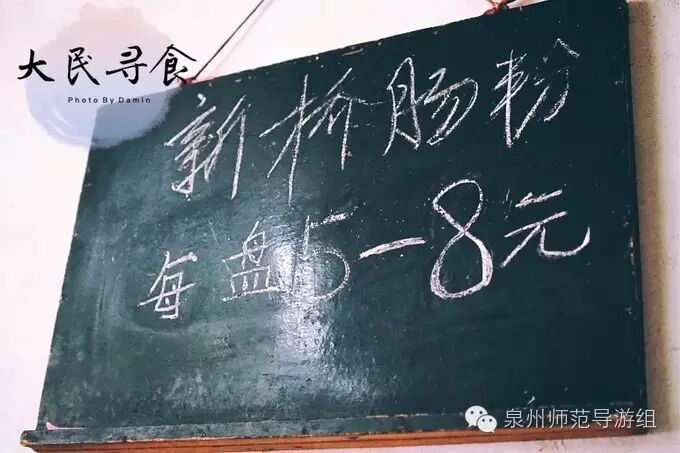 大民寻食
Photo By Damin
新桥肠粉
每盘5-8元
泉州师范导游组